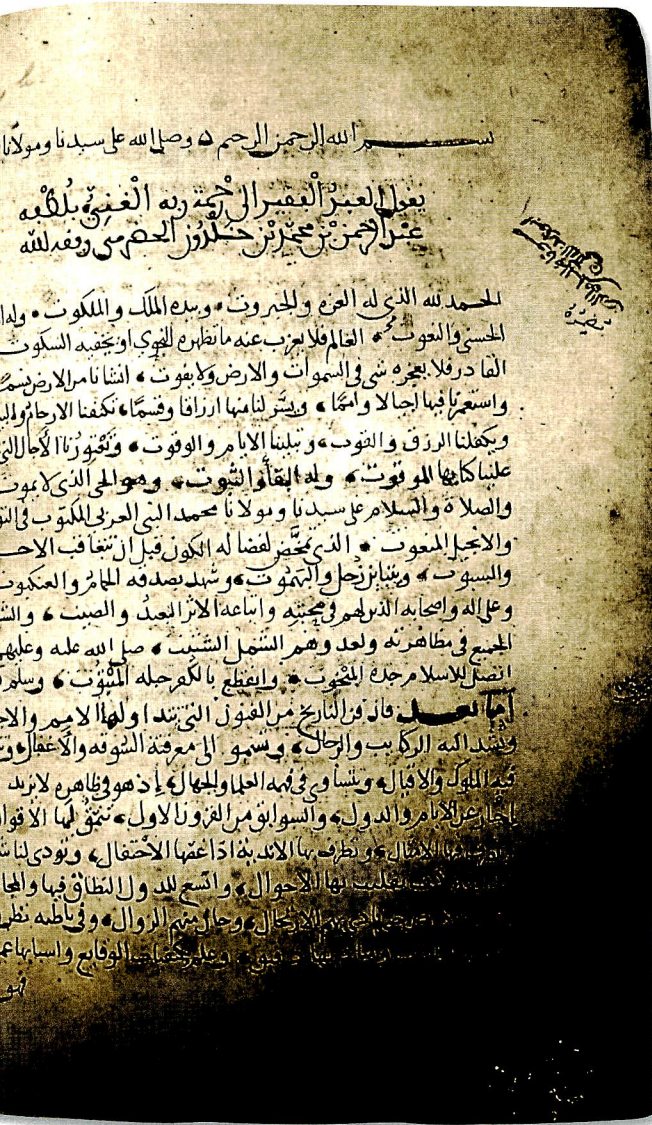 بسم الله الرحمن الرحيم ۵ وصلى الله على سيدنا ومولانا
يقول العبد الفقير الى رحمة ربه الغني بلطفه
عبد الرحمن بن محمد بن خلدون الحضرمي وفقه الله
الحمد لله الذي له العزة والجبروت، وبيده الملك والملكوت، وله ا
الحسنى والنعوت، العالم فلا يعزب عنه ما تظهره النجوى او يخفيه السكوت
القادر فلا يعجزه شي في السموات والارض ولا يفوت، انشانا من الارض نسما
واستعمرنا فيها اجيالا وامما، ويسر لنا منها ارزاقا وقسما، تكنفنا الارحام والبي
ويكفلنا الرزق والقوت، وتبلينا الايام والوقوت، وتعتورنا الآجال التي
علينا كتابها الموقوت، وله البقآ والثبوت، وهو الحي الذي لا يموت
والصلاة والسلام على سيدنا ومولانا محمد النبي العربي المكتوب في التو
والانجيل المنعوت، الذي تمخض لفصاله الكون قبل ان تتعاقب الاحـ
والسبوت، ويتباين زحل والبهموت، وشهد بصدقه الحمام والعنكبوت
وعلى اله واصحابه الذين لهم في محبته واتباعه الاثر البعيد والصيت، والش
الجميع في مظاهرته ولعدوهم الشمل الشتيت، صلى الله عليه وعليهم
اتصل للاسلام جده المبخوت، وانقطع بالكفر حبله المبتوت، وسلم
اما بعد فان فن التاريخ من الفنون التي تتداولها الامم والاج
وتشد اليه الركايب والرحال، وتسمو الى معرفته السوقه والاغفال، وت
فيه الملوك والاقيال، ويتساوى في فهمه العلما والجهال، إذ هو في ظاهره لا يزيد
اخبار عن الايام والدول، والسوابق من القرون الاول، تنمق لها الاقوا
فيها الامثال، وتطرف بها الاندية اذا غصها الاحتفال، وتودي لنا شا
تقلبت بها الاحوال، واتسع للدول النطاق فيها والمجا
بهم الارتحال، وحان منهم الزوال، وفي باطنه نظر
دقيق، وعلم بكيفيات الوقايع واسبابها عم
فهو